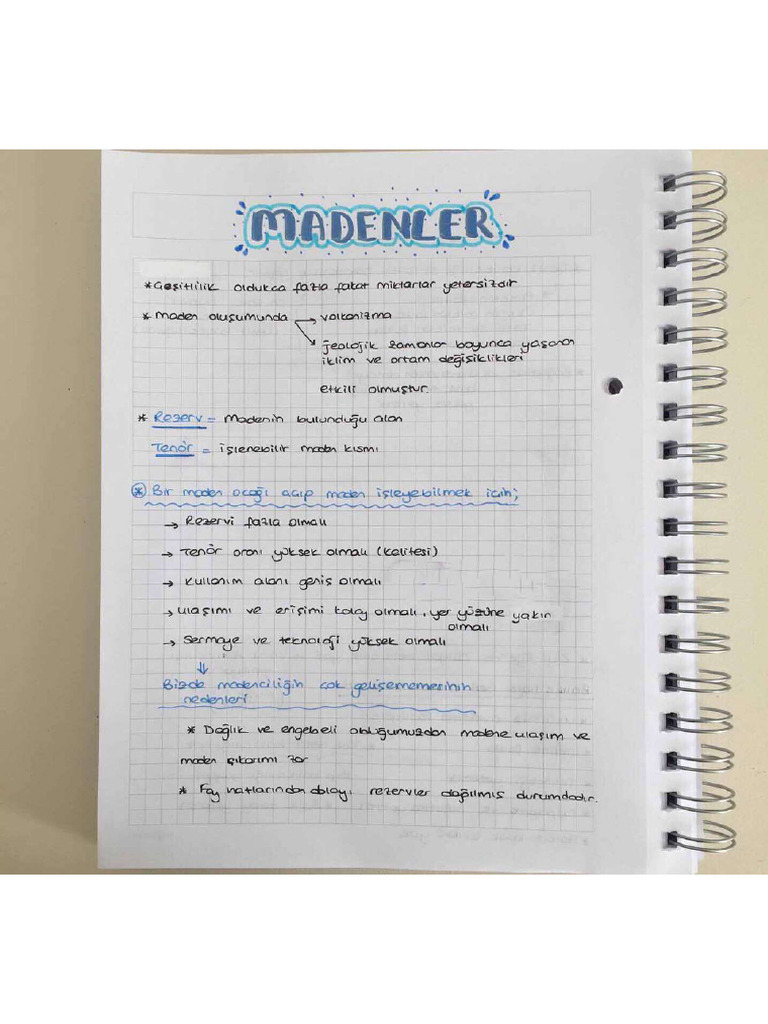 MADENLER
* Çeşitlilik oldukca fazla fakat miktarlar yetersizdir
* Maden oluşumunda → volkanizma
→ Jeolojik zamanlar boyunca yaşanan
iklim ve ortam değişiklikleri
etkili olmuştur.
* Rezerv = Madenin bulunduğu alan
Tenör = işlenebilir maden kısmı
* Bir maden ocağı açıp maden işleyebilmek için;
→ Rezervi fazla olmalı
→ Tenör oranı yüksek olmalı (kalitesi)
→ Kullanım alanı geniş olmalı
→ ulaşımı ve erişimi kolay olmalı, yer yüzüne yakın
olmalı
→ Sermaye ve teknoloji yüksek olmalı
⇓
Bizde madenciliğin çok gelişememesinin
nedenleri
* Dağlık ve engebeli olduğumuzdan madene ulaşım ve
maden çıkarımı zor
* Fay hatlarından dolayı rezervler dağılmış durumdadır.